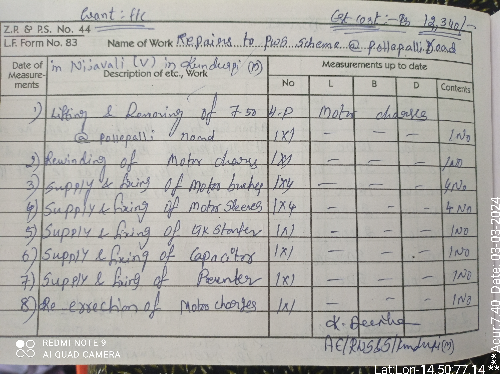 Grant: F/c Est cost:- Rs 12,340/-
Z.P. & P.S. No. 44
L.F. Form No. 83 Name of Work Repairs to PWS scheme @ pollapalli Road
Date of Measurements in Nijavali (V) in Kundurpi (M) Measurements up to date
Description of etc., Work No L B D Contents
1) Lifting & Removing of 7.50 H.P Motor charges
@ pollapalli 1x1 — — — 1No
2) Rewinding of Motor charges 1x1 — — — 1No
3) Supply & fixing of Motor bushes 1x4 — — — 4No
4) Supply & fixing of Motor Sleeves 1x4 — — — 4No
5) Supply & fixing of GK Starter 1x1 — — — 1No
6) Supply & fixing of Capacitor 1x1 — — — 1No
7) Supply & fixing of 1x1 — — — 1No
8) Re errection of Motor charges 1x1 — — — 1No
AE/RWS&S/Kundurpi(M)
REDMI NOTE 9
AI QUAD CAMERA
Lat,Lon-14.50:77.14 *** Acur:7.40 Date: 03-03-2024